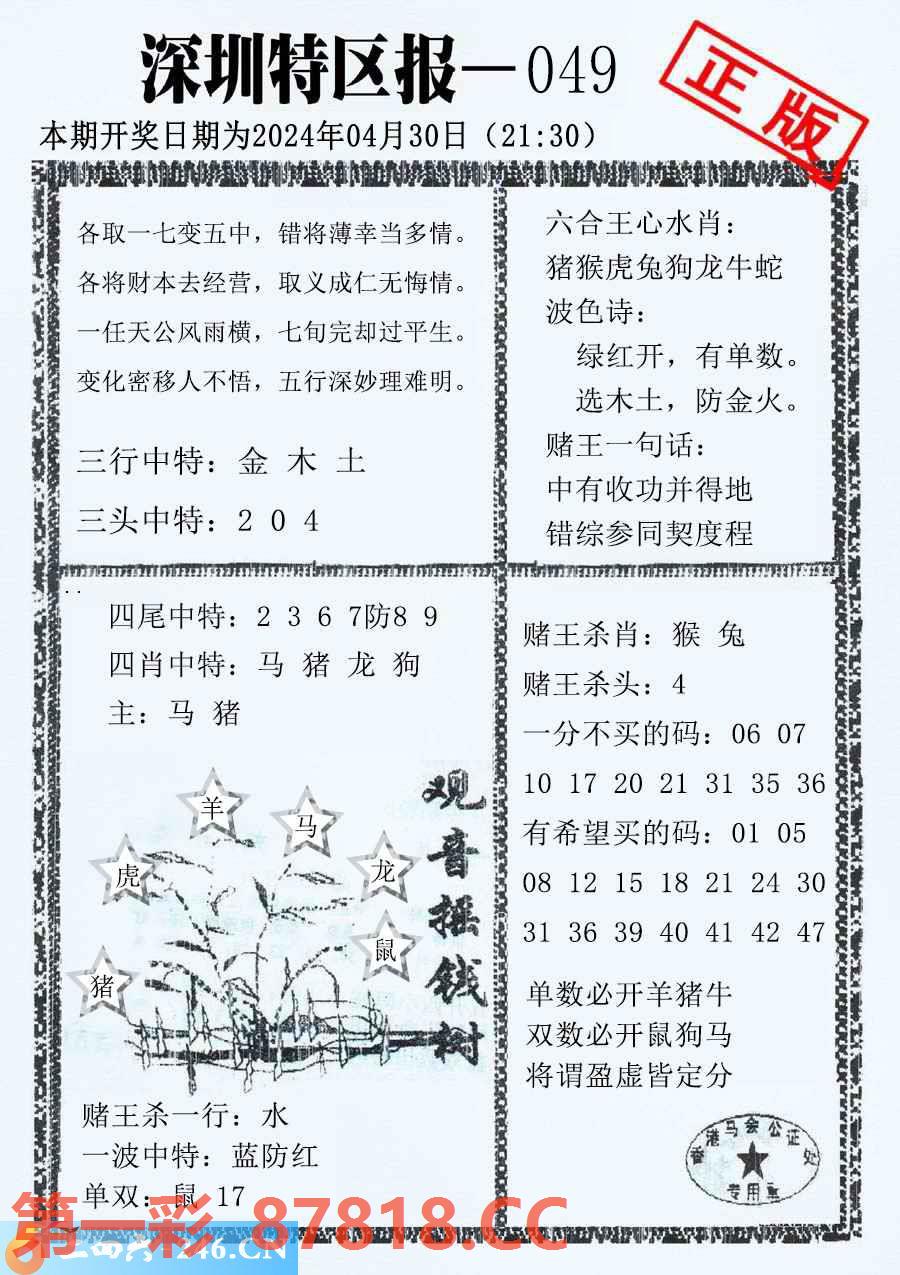 深圳特区报—049
正版
本期开奖日期为2024年04月30日（21:30）
各取一七变五中，错将薄幸当多情。
各将财本去经营，取义成仁无悔情。
一任天公风雨横，七旬完却过平生。
变化密移人不悟，五行深妙理难明。
三行中特：金 木 土
三头中特：2 0 4
六合王心水肖：
猪猴虎兔狗龙牛蛇
波色诗：
绿红开，有单数。
选木土，防金火。
赌王一句话：
中有收功并得地
错综参同契度程
四尾中特：2 3 6 7防8 9
四肖中特：马 猪 龙 狗
主：马 猪
羊
马
虎
龙
鼠
猪
观音摇钱树
赌王杀一行：水
一波中特：蓝防红
单双：鼠 17
赌王杀肖：猴 兔
赌王杀头：4
一分不买的码：06 07
10 17 20 21 31 35 36
有希望买的码：01 05
08 12 15 18 21 24 30
31 36 39 40 41 42 47
单数必开羊猪牛
双数必开鼠狗马
将谓盈虚皆定分
香港马会公证处
专用章
第一彩 87818.CC
246.CN